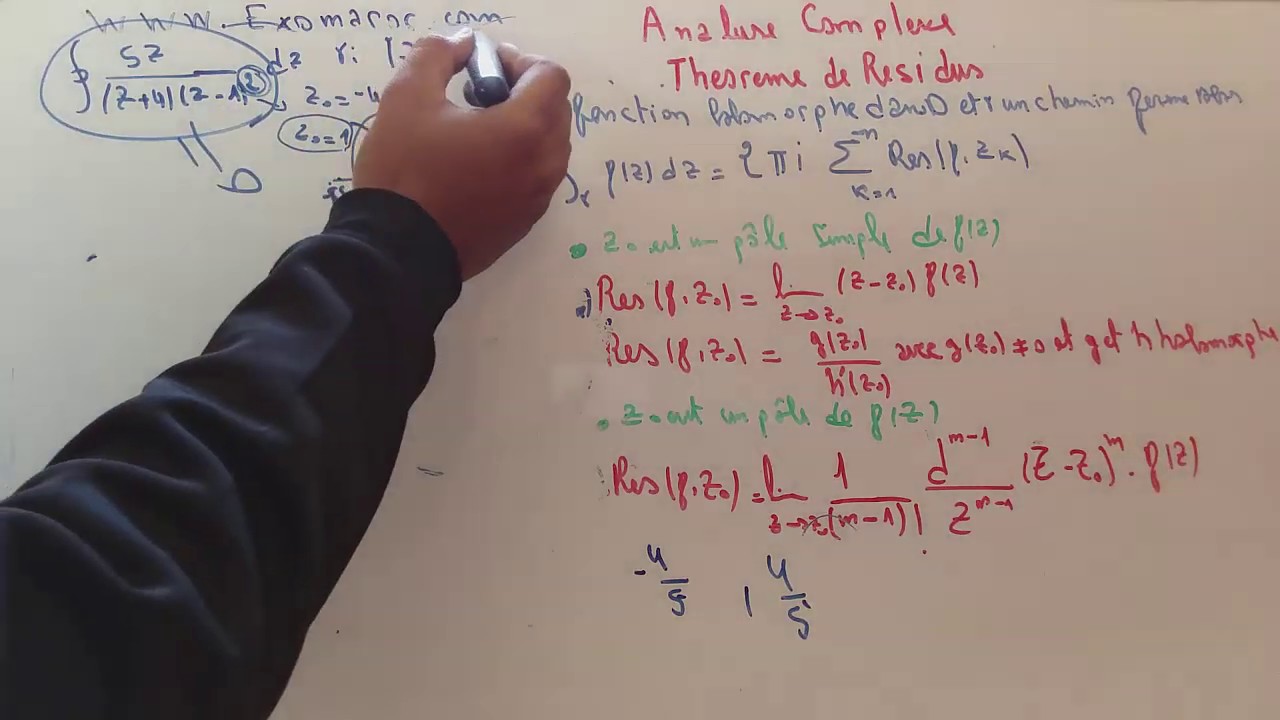 www.Exomaroc.com
∮ 5z / (z+4)(z-1)² dz γ: |z
z₀=-4
z₀=1
D
Analyse Complexe
Theoreme de Residus
fonction holomorphe dans D et γ un chemin ferme dans
∫γ f(z) dz = 2πi Σ Res(f, zk)
k=1
• z₀ est un pôle simple de f(z)
Res(f, z₀) = lim (z-z₀) f(z)
z→z₀
Res(f, z₀) = g(z₀) / h'(z₀) avec g(z₀) ≠ 0 et g et h holomorphe
• z₀ est un pôle de f(z)
Res(f, z₀) = lim 1/(m-1)! d^(m-1)/z^(m-1) (z-z₀)^m . f(z)
z→z₀
-4/5 , 4/5